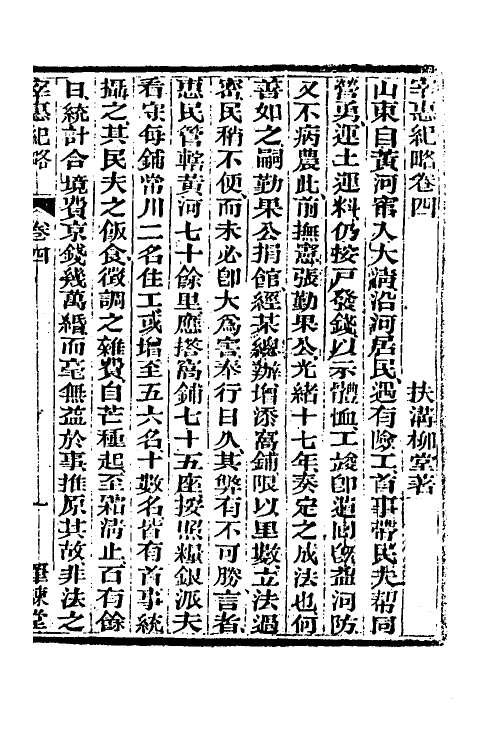 宰惠紀略卷四
扶溝柳堂著
山東自黃河竄入大淸沿河居民遇有險工首事帶民夫帮同
營勇運土運料仍按戸發錢以示體恤工竣卽遣囘旣益河防
又不病農此前撫憲張勤果公光緒十七年奏定之成法也何
善如之嗣勤果公捐館經某總辦增添窩鋪限以里數立法過
密民稍不便而未必卽大爲害奉行日久其弊有不可勝言者
惠民管轄黃河七十餘里應搭窩鋪七十五座按照糧銀派夫
看守每鋪常川二名住工或增至五六名十數名皆有首事統
攝之其民夫之飯食徵調之雜費自芒種起至霜淸止百有餘
日統計合境費京錢幾萬緡而毫無益於事推原其故非法之
宰惠紀略
卷四
一
筆諫堂